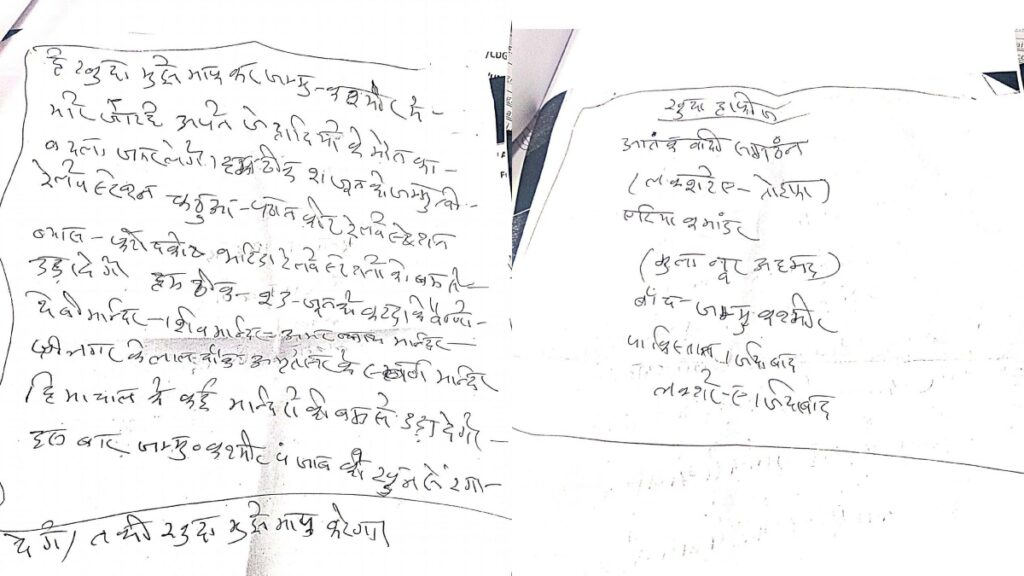 हे खुदा मुझे माफ कर जम्मु-कश्मीर मे-
मारे जा रहे अपने जेहादियों के मौत का-
बदला जरूर लेंगे। हम ठीक 21 जून को जम्मु तवी-
रेलवे स्टेशन कठुआ-पठान कोट रेलवे स्टेशन
ब्यास-फरीदकोट भटिंडा रेलवे स्टेशनों को बम से-
उड़ा देंगे हम ठीक-23-जून को कटड़ा के वैष्णो-
देवी मन्दिर-शिव मन्दिर-अमर नाथ मन्दिर-
श्री नगर के लाल चौक-अमृतसर के स्वर्ण मन्दिर
हिमाचल के कई मन्दिरों को बम से उड़ा देंगे-
इस बार जम्मु कश्मीर पंजाब को खुन से रंगा-
देंगे। तभी खुदा मुझे माफ करेगा।
खुदा हाफीज
आतंकवादी संगठन
(लश्करे ए-तोईबा)
एरिया कमांडर
(मुला नूर अहमद)
जम्मु कश्मीर
पाकिस्तान जिंदाबाद
लश्करे-ए जिंदाबाद